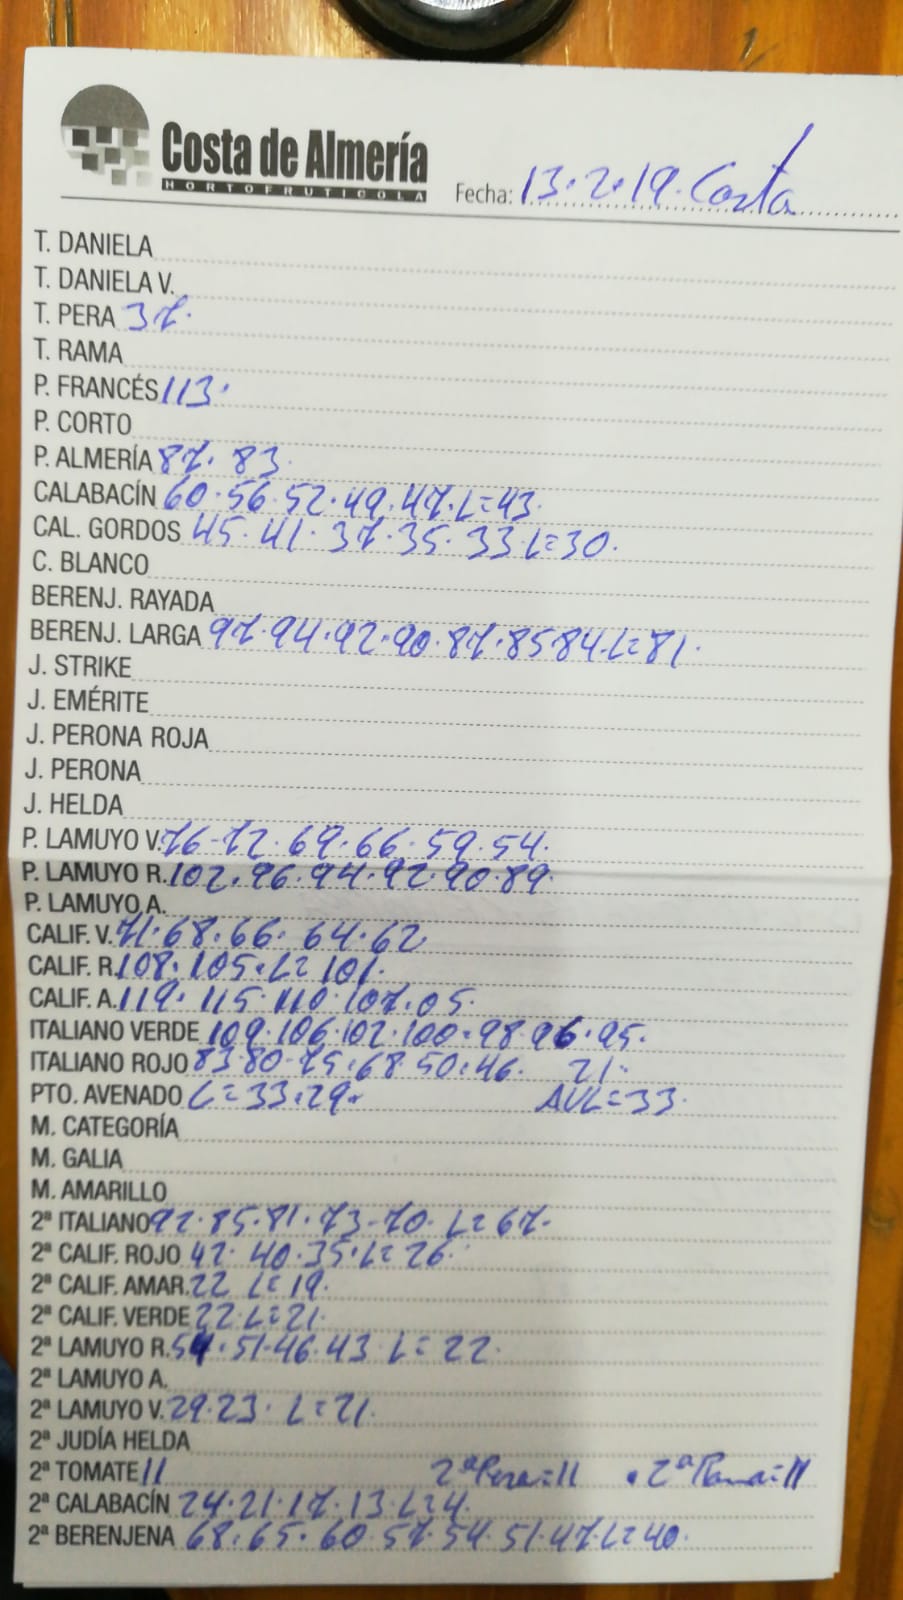 Costa de Almería
HORTOFRUTICOLA
Fecha: 13.2.19. Costa
T. DANIELA
T. DANIELA V.
T. PERA 37.
T. RAMA
P. FRANCÉS 113.
P. CORTO
P. ALMERÍA 87. 83.
CALABACÍN 60.56.52.49.47.L=43.
CAL. GORDOS 45.41.37.35.33.L=30.
C. BLANCO
BERENJ. RAYADA
BERENJ. LARGA 97.94.92.90.87.85 84.L=81.
J. STRIKE
J. EMÉRITE
J. PERONA ROJA
J. PERONA
J. HELDA
P. LAMUYO V. 76-72.69.66.59.54.
P. LAMUYO R. 102.96.94.92.90.89.
P. LAMUYO A.
CALIF. V. 71.68.66. 64.62.
CALIF. R. 108.105.L=101.
CALIF. A. 119.115.110.107.05.
ITALIANO VERDE 109.106.102.100.98.96.95.
ITALIANO ROJO 83.80-75.68.50.46. 21.
PTO. AVENADO L=33.29. AVL=33.
M. CATEGORÍA
M. GALIA
M. AMARILLO
2ª ITALIANO 92.85.81.73-70. L=67.
2ª CALIF. ROJO 42. 40.35.L=26.
2ª CALIF. AMAR. 22 L=19.
2ª CALIF. VERDE 22.L=21.
2ª LAMUYO R. 54.51-46.43.L=22.
2ª LAMUYO A.
2ª LAMUYO V. 29.23. L=21.
2ª JUDÍA HELDA
2ª TOMATE 11 2ª Pera=11 .2ª Rama=11
2ª CALABACÍN 24.21.17.13.L=4.
2ª BERENJENA 68.65.60.57.54.51.47.L=40.